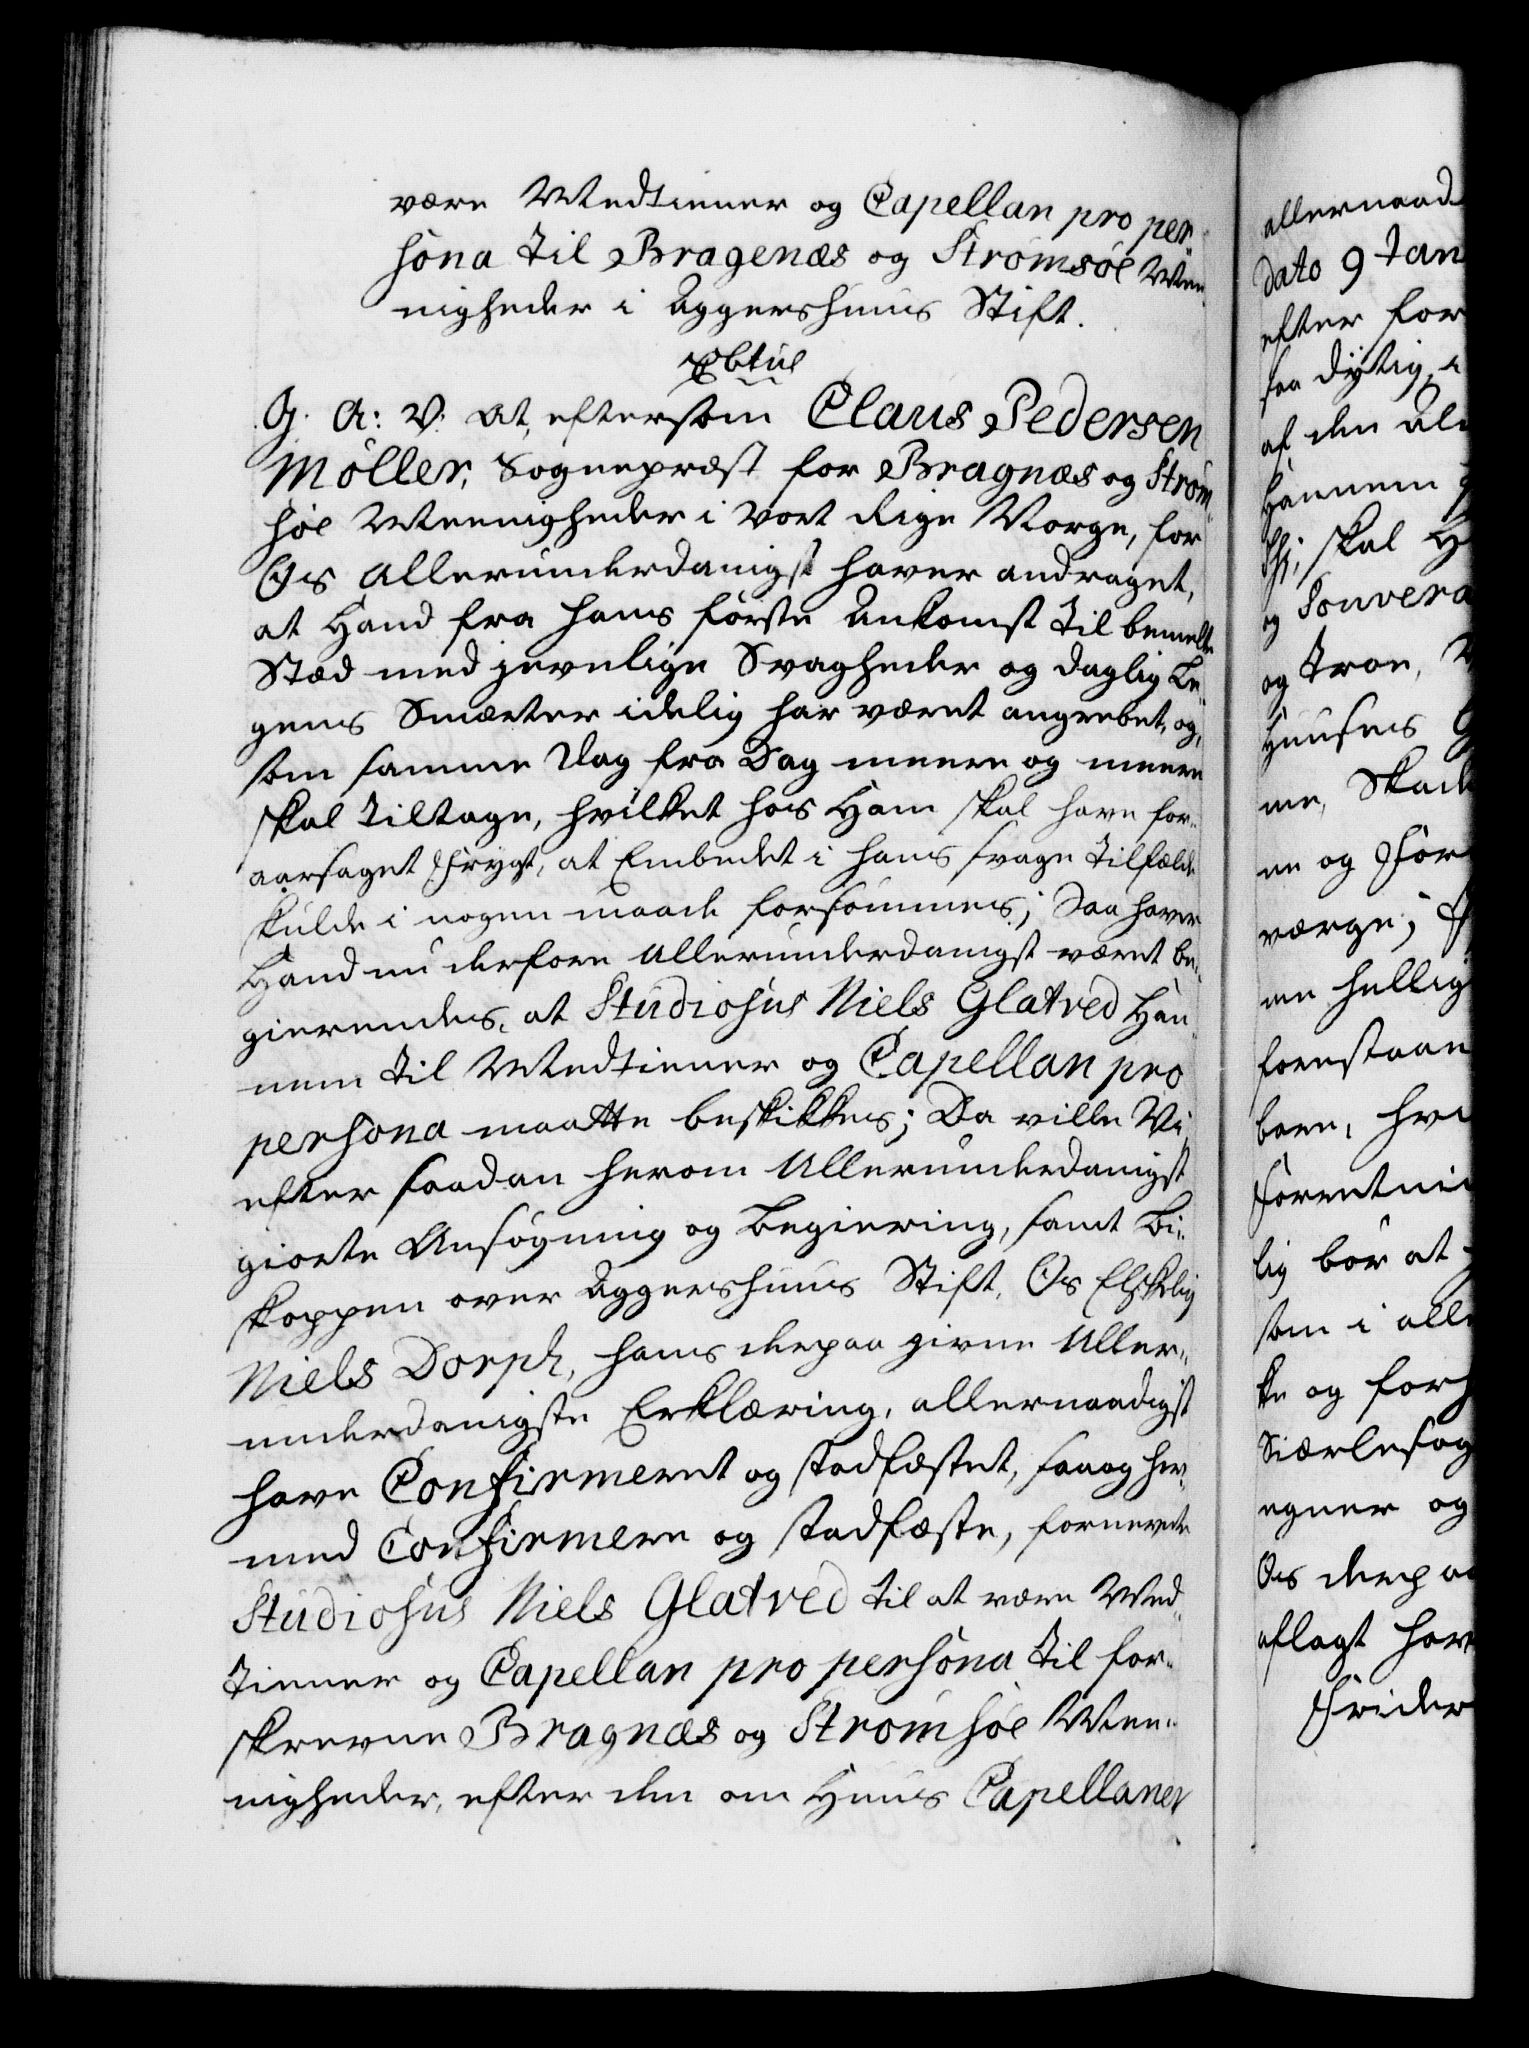 være Medtiener og Capellan pro per-
sona til Bragenæs og Strømsøe Mee-
nigheder i Aggershuus Stift.
G. A: V. at, eftersom Claus Pedersen
Møller, Sognepræst for Bragnæs og Strøm-
søe Meenigheder i Vort Rige Norge, for
Os allerunderdanigst haver andraget,
at Hand fra hans første Ankomst til bemelte
Stæd med jevnlige Svagheder og daglig Le-
gems Smerter idelig har været angrebet, og,
som samme Dag fra Dag meere og meere
skal tiltage, hvilket hos Ham skal have for-
aarsaget Frygt, at Embedet i hans svage Tilfælde
skulde i nogen maade forsømmes; Saa haver
Hand nu derfore Allerunderdanigst været be-
gierendes, at Studiosus Niels Glatved Han-
nem til Medtiener og Capellan pro
persona maatte beskikkes; Da ville Vi
efter saadan herom Allerunderdanigst
giorte Ansøgning og Begiering, samt Bi-
skoppen over Aggershuus Stift, Os Elskelig
Niels Dorph, hans derpaa givne Aller-
underdanigste Erklæring, allernaadigst
have Confirmeret og stadfæstet, saa og her-
med Confirmere og stadfæste, fornevnte
Studiosus Niels Glatved til at være Med-
tiener og Capellan pro persona til for-
skrevne Bragnæs og Strømsøe Mee-
nigheder, efter den om Huus Capellaner
allernaad
Dato 9 Jan
efter for
saa dygtig
af den
Hannem
skal H
og Souvera
og Troe,
Huuses
me, Skad
ne og For
værge;
en hellig
forestaae
bære, hvi
Forretni
lig bør at
som i alle
ke og forh
Siærlesog
egner og
Os derpaa
aflagt hav
Frider